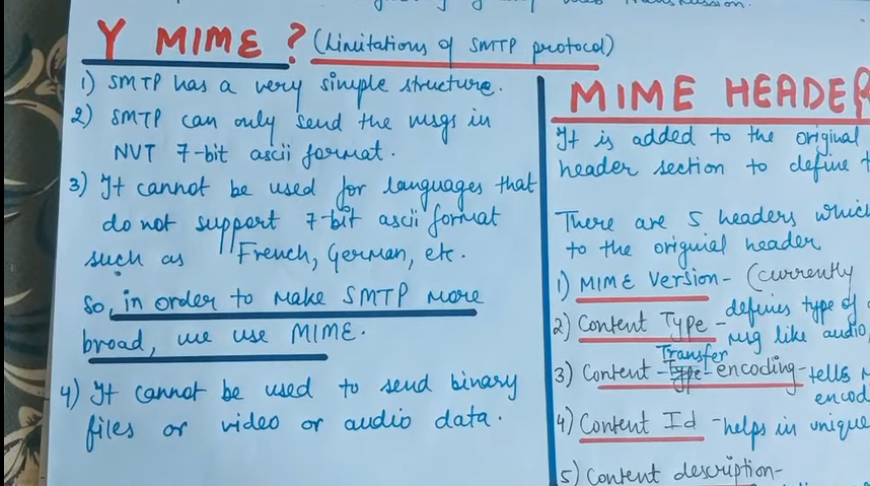 Transmission.
Y MIME? (Limitations of SMTP protocol)
1) SMTP has a very simple structure.
2) SMTP can only send the msgs in
NVT 7-bit ascii format.
3) It cannot be used for languages that
do not support 7-bit ascii format
such as French, German, etc.
So, in order to make SMTP more
broad, we use MIME.
4) It cannot be used to send binary
files or video or audio data.
MIME HEADER
It is added to the original
header section to define
There are 5 headers which
to the original header
1) MIME Version - (currently
2) Content Type - defines type of
msg like audio,
3) Content-Transfer-encoding - tells
encod
4) Content Id - helps in unique
5) Content description-